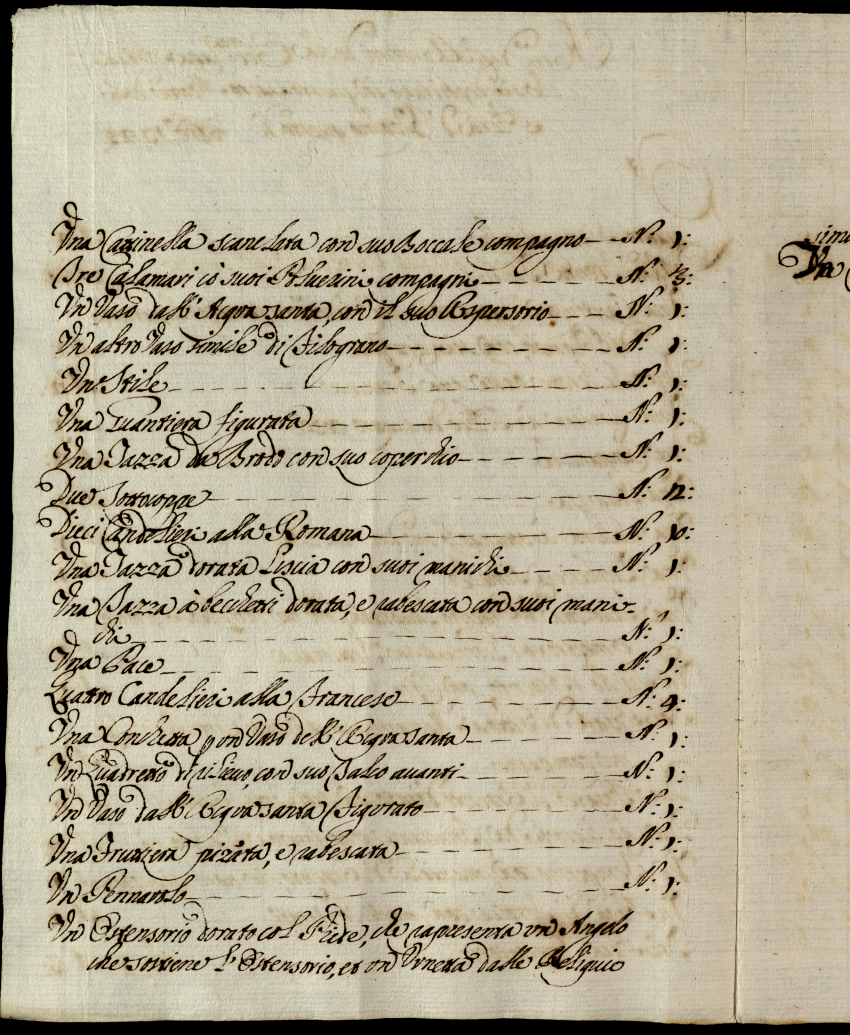 Una Cattinella scanelata con suo Boccale compagno — N.º 1:
Tre Calamari cò suoi Polverini compagni — N.º 3:
Un Vaso dall' Acqua santa, con il suo Aspersorio — N.º 1:
Un altro Vaso simile di Filograno — N.º 1:
Un Stile — N.º 1:
Una Guantiera figurata — N.º 1:
Una Tazza da Brodo con suo coperchio — N.º 1:
Due Sottocoppe — N.º 12:
Dieci Candelieri alla Romana — N.º 10:
Una Tazza dorata Liscia con suoi manichi — N.º 1:
Una Tazza à becchetti dorata, e rabescata con suoi mani-
chi — N.º 1:
Una Pace — N.º 1:
Quatro Candelieri alla Francese — N.º 4:
Una Conchetta p on Vaso dell' Acqua santa — N.º 1:
Un Quadretto di rilievo, con suo Palio avanti — N.º 1:
Un Vaso dall' Acqua santa Figurato — N.º 1:
Una Fruttiera pizzata, e rabescata — N.º 1:
Un Pennarolo — N.º 1:
Un Ostensorio dorato col Piede, che rapresenta un Angelo
che sostiene l' Ostensorio, et un Urnetta dalle Reliquie
Una